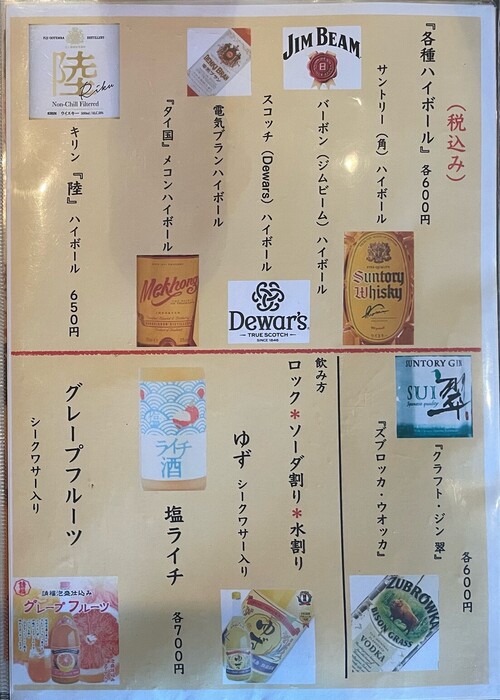 (税込み)
『各種ハイボール』各600円
サントリー(角)ハイボール
バーボン(ジムビーム)ハイボール
スコッチ(Dewars)ハイボール
電気ブランハイボール
『タイ国』メコンハイボール
キリン『陸』ハイボール 650円
JIM BEAM
陸
Riku
Non-Chill Filtered
Mekhong
Dewar's
TRUE SCOTCH
SINCE 1846
Suntory
Whisky
SUNTORY GIN
SUI
翠
『クラフト・ジン 翠』
『ズブロッカ・ウオッカ』
各600円
ZUBROWKA
BISON GRASS
VODKA
飲み方
ロック*ソーダ割り*水割り
ゆず シークワサー入り
塩ライチ
各700円
グレープフルーツ
シークワサー入り
ライチ
酒
請福泡盛仕込み
グレープフルーツ